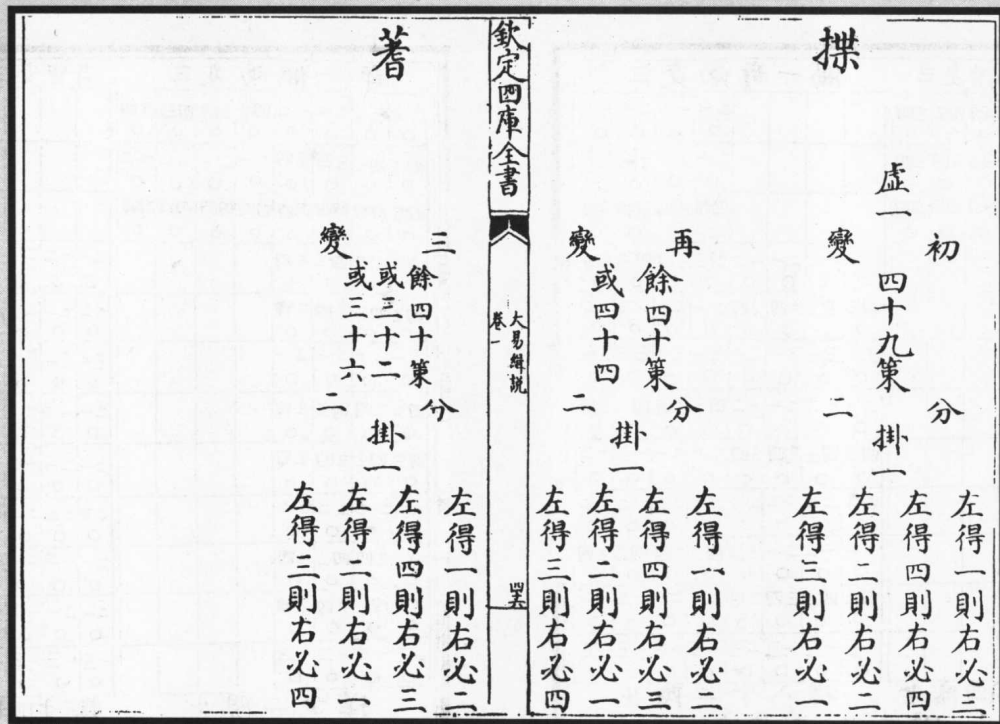 揲
初變
虛一
四十九策
分二
掛一
左得一則右必三
左得四則右必四
左得二則右必二
左得三則右必一
再變
餘四十策
或四十四
分二
掛一
左得一則右必二
左得四則右必三
左得二則右必一
左得三則右必四
欽定四庫全書
大易緝說
卷一
蓍
三變
餘四十策
或三十二
或三十六
分二
掛一
左得一則右必二
左得四則右必三
左得二則右必一
左得三則右必四